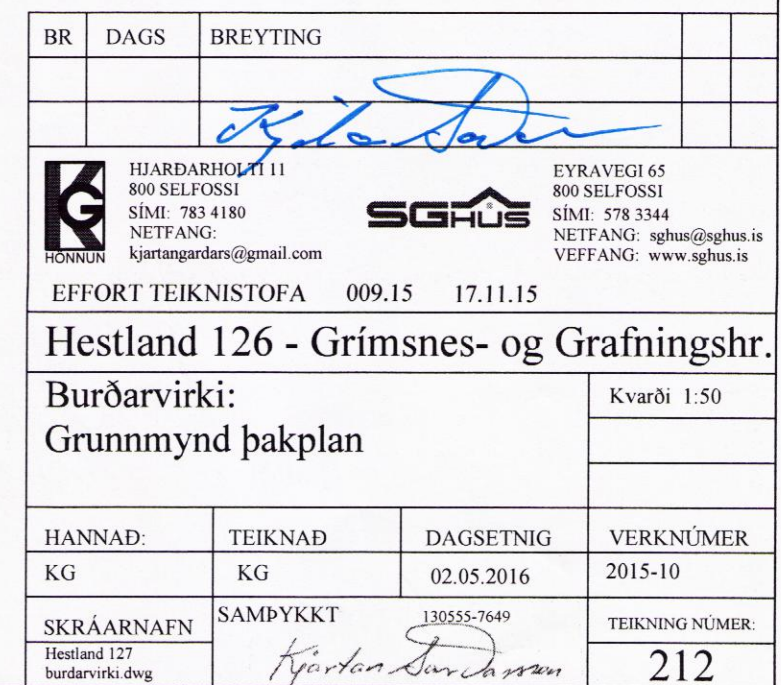 BR DAGS BREYTING
KG
HÖNNUN
HJARÐARHOLTI 11
800 SELFOSSI
SÍMI: 783 4180
NETFANG:
kjartangardars@gmail.com
SG HÚS
EYRAVEGI 65
800 SELFOSSI
SÍMI: 578 3344
NETFANG: sghus@sghus.is
VEFFANG: www.sghus.is
EFFORT TEIKNISTOFA 009.15 17.11.15
Hestland 126 - Grímsnes- og Grafningshr.
Burðarvirki:
Grunnmynd þakplan
Kvarði 1:50
HANNAÐ: TEIKNAÐ DAGSETNIG VERKNÚMER
KG KG 02.05.2016 2015-10
SKRÁARNAFN
Hestland 127
burdarvirki.dwg
SAMÞYKKT 130555-7649
Kjartan Garðarsson
TEIKNING NÚMER:
212